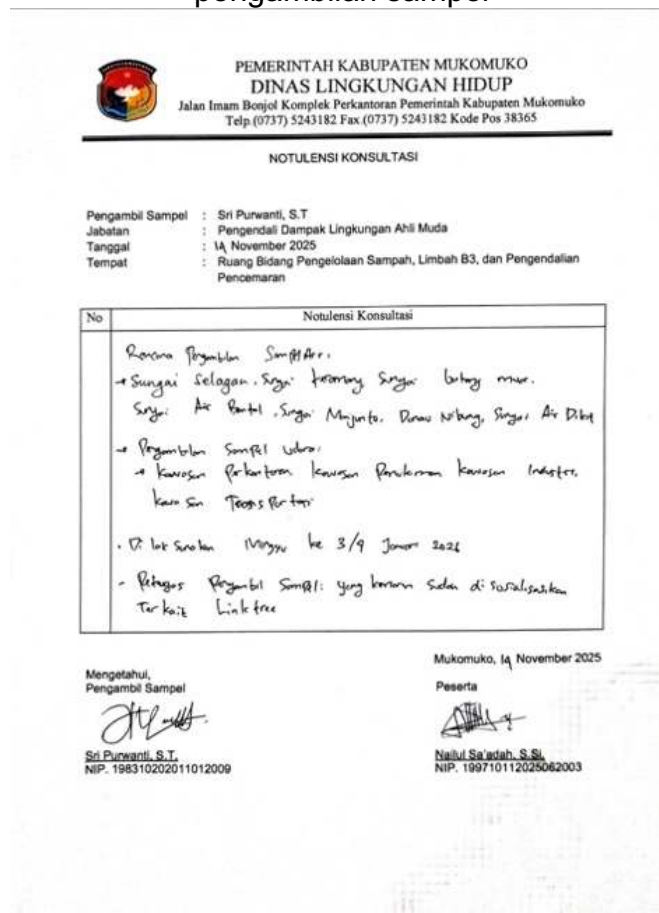 pengambilan sampel
PEMERINTAH KABUPATEN MUKOMUKO
DINAS LINGKUNGAN HIDUP
Jalan Imam Bonjol Komplek Perkantoran Pemerintah Kabupaten Mukomuko
Telp.(0737) 5243182 Fax.(0737) 5243182 Kode Pos 38365
NOTULENSI KONSULTASI
Pengambil Sampel : Sri Purwanti, S.T
Jabatan : Pengendali Dampak Lingkungan Ahli Muda
Tanggal : 14 November 2025
Tempat : Ruang Bidang Pengelolaan Sampah, Limbah B3, dan Pengendalian
Pencemaran
No Notulensi Konsultasi
Rencana Pengambilan Sampel Air:
→ Sungai Selagan, Sungai Sungai
Sungai Air Bantal, Sungai Manjunto, Danau Nibung, Sungai Air Dikit
→ Pengambilan Sampel udara:
→ Kawasan Perkantoran Kawasan Permukiman Kawasan Industri,
Kawasan Transportasi
. Di laksanakan Minggu ke 3/4 2026
- Petugas Pengambil Sampel: yang sudah di sosialisasikan
Terkait Linktree
Mukomuko, 14 November 2025
Mengetahui,
Pengambil Sampel
Peserta
Sri Purwanti, S.T.
NIP. 198310202011012009
Nailul Sa'adah, S.Si.
NIP. 199710112025062003